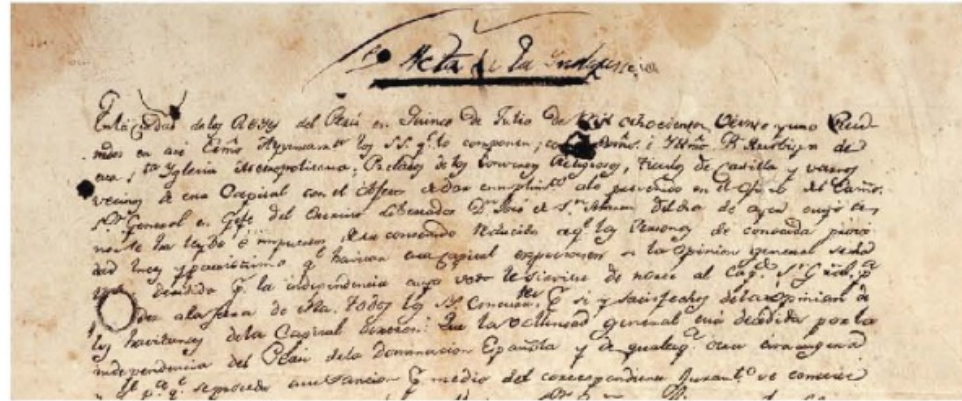 Acta de la Independencia
En la Ciudad de los Reyes del Perú en quince de Julio de mil ochocientos veinte y uno Reuni-
dos en este Exmô Ayuntam.to los SS. q.e lo componen, con el Exmô. e Yltmô. Arzobispo de
esta S.ta Yglesia Metropolitana, Prelados de los Conventos Religiosos, Titulos de Castilla y varios
vecinos de esta Capital con el objeto de dar cumplim.to alo prevenido en el Oficio del Exmô.
S.or General en Gefe del Exercito Libertador D.n José de S.n Martin del dia de ayer, cuyo
se ha leydo é impuestos, de su contenido reducido aq.e las Personas de conocida provi-
dad luces y patriotismo q.e havitan esta Capital expresasen si la Opinion general se ha
decidida p.r la independencia cuyo voto le sirviese de norte al
todos los SS. p.r si y satisfechos dela Opinion de
los havitantes dela Capital dixeron: Que la voluntad general está decidida por la
independencia del Perú dela Dominacion Española y de qualesq.a otra extrangera
q.e se proceda a la sancion p.r medio del correspondiente Juram.to